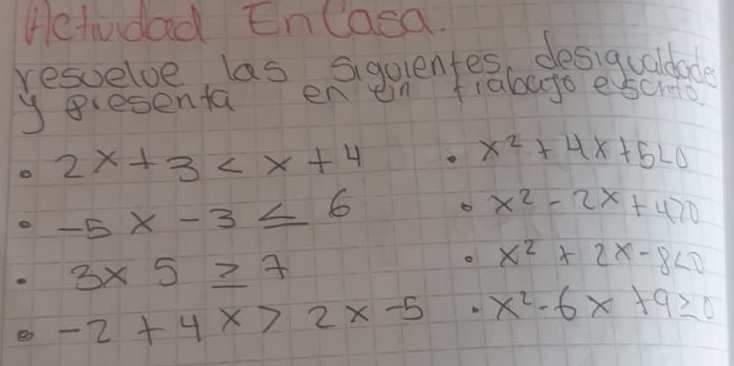 Actividad En Casa.
resuelve las siguientes desigualdades
y presenta en un trabajo escrito
• 2x + 3 < x + 4
• x² + 4x + 5 < 0
• -5x - 3 ≤ 6
• x² - 2x + 4 > 0
• 3x 5 ≥ 7
• x² + 2x - 8 < 0
• -2 + 4x > 2x - 5
• x² - 6x + 9 ≥ 0